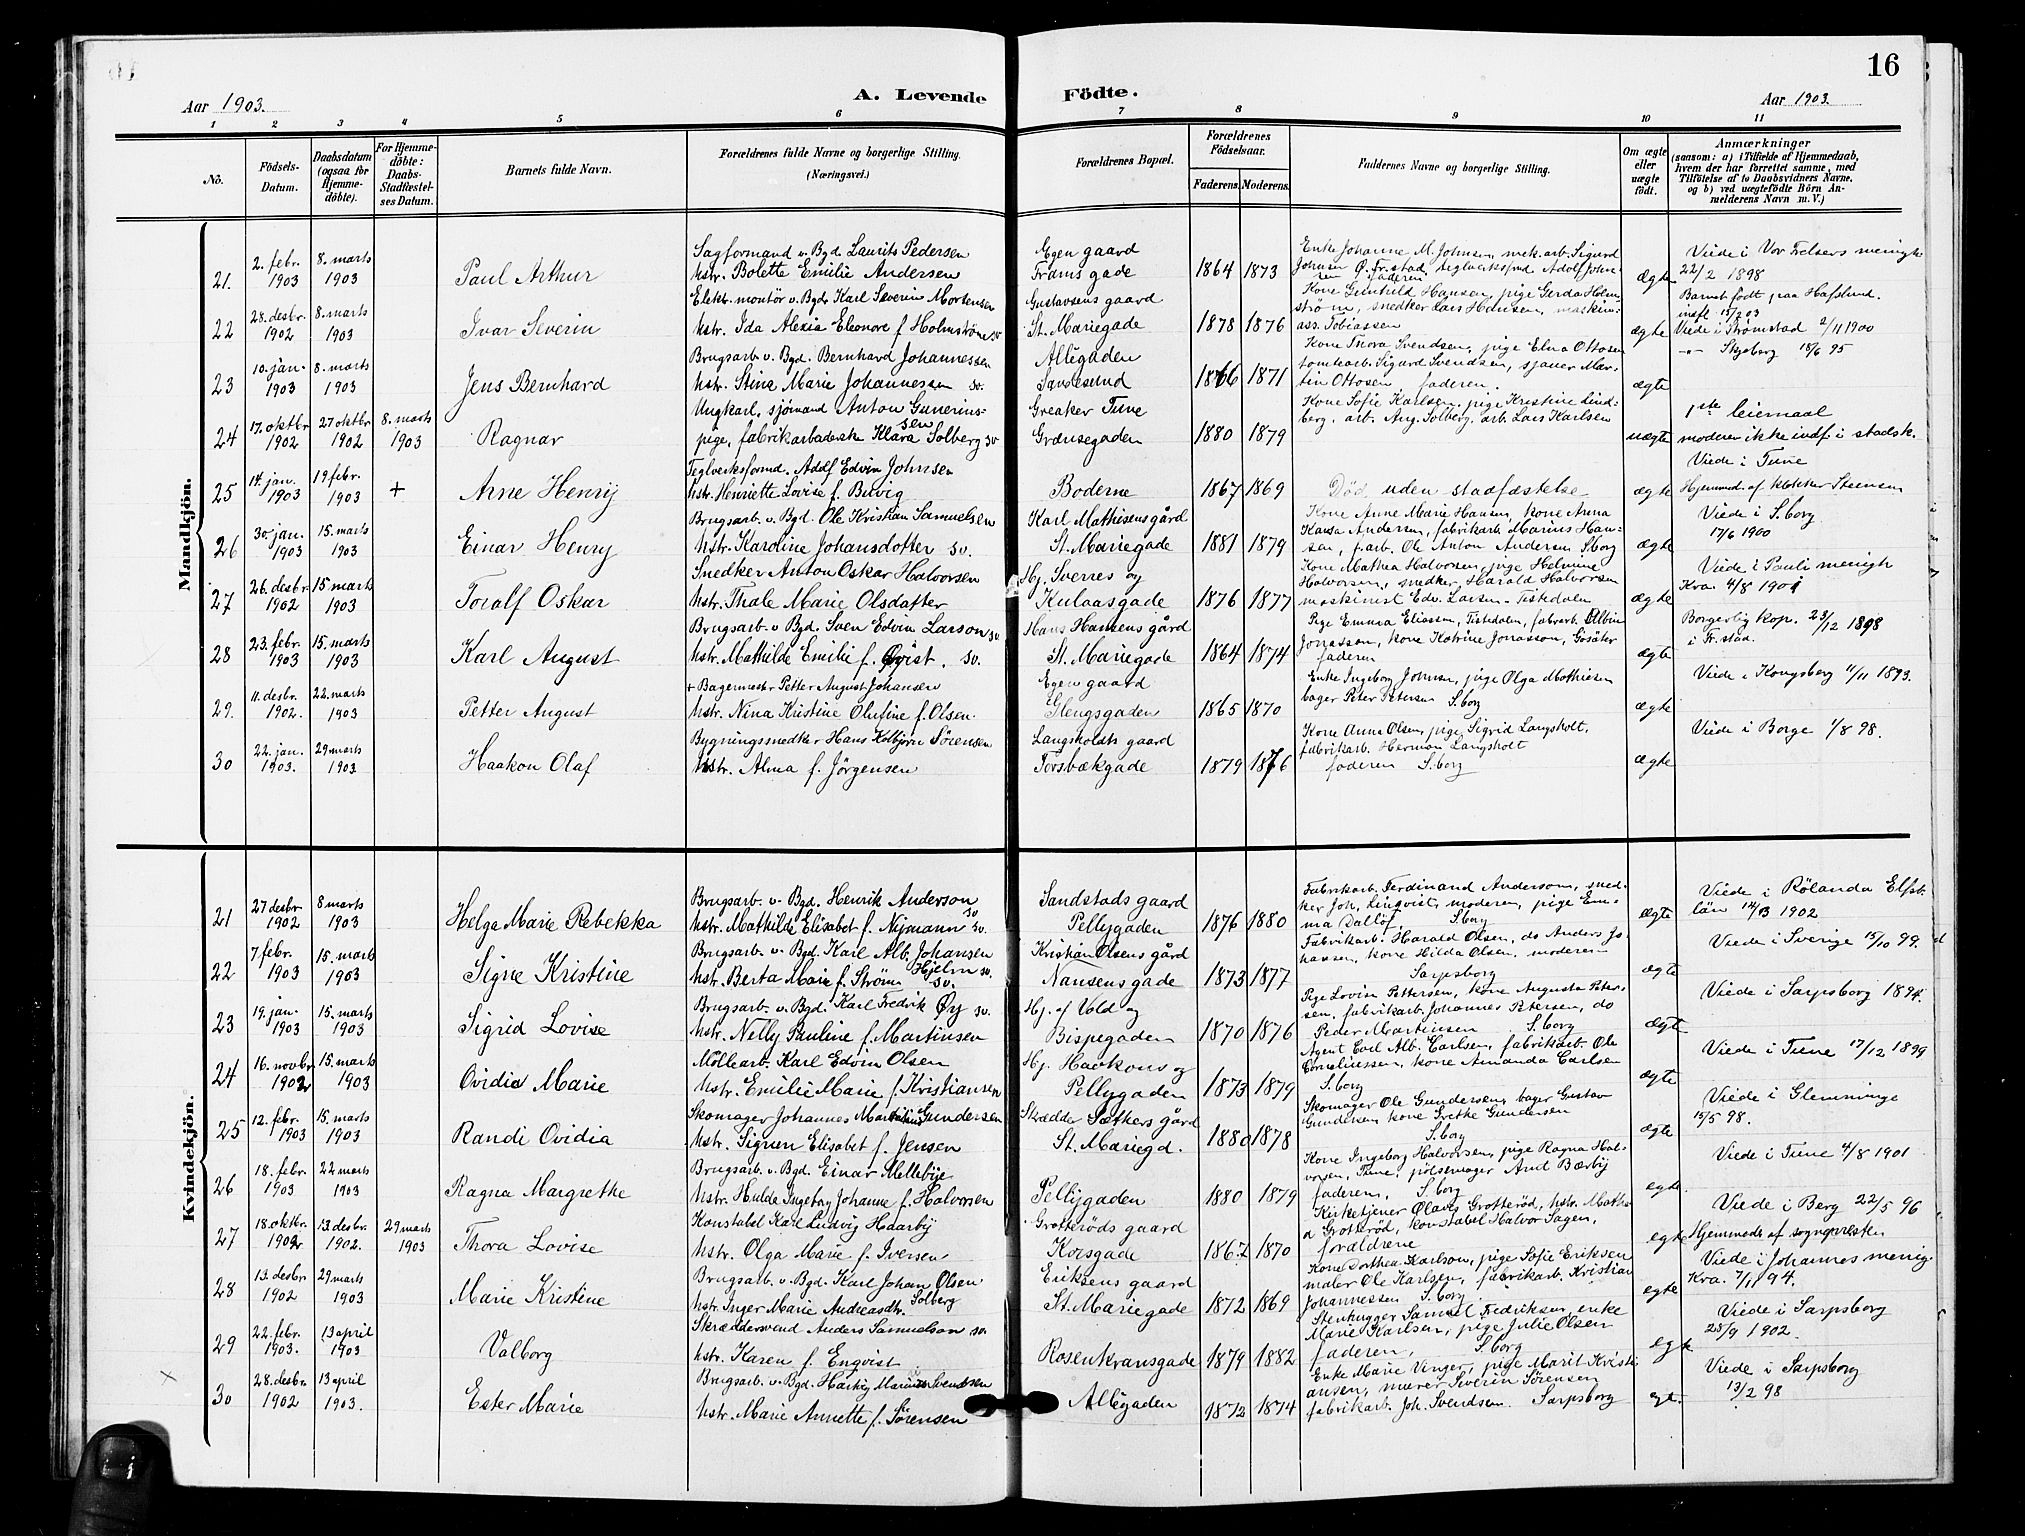 16
Aar 1903.
A. Levende
Födte.
Aar 1903.
1 2 3 4 5 6 7 8 9 10 11
No.
Födsels-
Datum.
Daabsdatum
(ogsaa for
Hjemme-
döbte).
For Hjemme-
döbte:
Daabs-
Stadfæstel-
ses Datum.
Barnets fulde Navn.
Forældrenes fulde Navne og borgerlige Stilling.
(Næringsvei.)
Forældrenes Bopæl.
Forældrenes
Födselsaar.
Faderens. Moderens.
Faddernes Navne og borgerlige Stilling.
Om ægte
eller
uægte
födt.
Anmærkninger
(saasom: a) i Tilfælde af Hjemmedaab,
hvem der har forrettet samme, med
Tilföielse af to Daabsvidners Navne,
og b) ved uægtefödte Börn An-
melderens Navn m. V.)
Mandkjön.
21. 2. febr. 1903 8. marts 1903 Paul Arthur
Sagformand v. Bgd. Laurits Pedersen
hstr. Bolette Emilie Andersen
Egen gaard
Frams gade
1864 1873
Enke Johanne M. Johnsen, mek. arb. Sigurd
Johnsen Ø. Fr.stad, teglverksfmd Adolf John-
sen faderen
ægte
Viede i Vor Frelsers menigh
22/2 1898
22 28. desbr. 1902 8. marts 1903 Ivar Severin
Elektr. montör v. Bgd. Karl Severin Mortensen
hstr. Ida Alexia Eleonore f. Holmstrøm sv
Gustavsens gaard
St. Mariegade
1878 1876
Kone Gunhild Hansen, pige Gerda Holm
strøm, snedker Lars Hansen, maskin-
ass. Tobiassen
ægte
Barnet født paa Hafslund.
Viede i Strømstad 2/11 1900
23 10. jan. 1903 8. marts 1903 Jens Bernhard
Brugsarb. v. Bgd. Bernhard Johannessen
hstr. Stine Marie Johannessen sv.
Allégaden
Sandesund
1866 1871
Kone Thora Svendsen, pige Elna Ottosen
tomtearb. Sigard Svendsen, sjauer Mar-
tin Ottosen, faderen.
ægte
-"- Skjeberg 18/6 95
24 17. oktbr 1902 27 oktbr 1902 8. marts 1903 Ragnar
Ungkarl, sjömand Anton Gunerius-
sen
pige, fabrikarbaderske Klara Solberg sv
Greaker Tune
Grænsegaden
1880 1879
Kone Sofie Karlsen, pige Kristine Lind-
berg, arb. Aug. Solberg, arb. Lars Karlsen
uægte
1ste leiermaal
moderen ikke indf. i stadsk.
25 14. jan. 1903 19 febr. 1903 + Arne Henry
Teglverksformd. Adolf Edvin Johnsen
hstr. Henriette Lovise f. Belvig
Boderne
1867 1869
Död uden stadfæstelse
ægte
Viede i Tune
Hjemmed. af klokker Steensen
26 30. jan. 1903 15. marts 1903 Einar Henry
Brugsarb. v. Bgd. Ole Kristian Samuelsen
hstr. Karoline Johansdotter sv.
Karl Mathisens gård
St. Mariegade
1881 1879
Kone Anne Marie Hansen, kone Anna
Andersen, fabrikarb. Marius Han-
sen, f.arb. Ole Anton Andersen S.borg
ægte
Viede i S.borg
17/6 1900
27 26. desbr. 1902 15. marts 1903 Toralf Oskar
Snedker Anton Oskar Halvorsen
hstr. Thale Marie Olsdatter
Hj. Sverres og
Kulaasgade
1876 1877
Kone Mathea Halvorsen, pige Helmine
Halvorsen, snedker Harald Halvorsen
maskinist Edv. Larsen - Tistedalen
ægte
Viede i Pauli menigh
Kra. 4/8 1901
28 23. febr. 1903 15. marts 1903 Karl August
Brugsarb. v. Bgd. Sven Edvin Larson sv
hstr. Mathilde Emilie f. Qvist. sv.
Hans Hansens gård
St. Mariegade
1864 1874
Pige Emma Eliassen, Tistedalen, fabrarb. Albin
Jonassen, kone Katrine Jonasson,
faderen
ægte
Borgerlig kop. 23/12 1898
i Fr.stad.
29. 11. desbr. 1902. 22. marts 1903 Petter August
+ Bagermester Petter August Johansen
hstr. Nina Kristine Olufine f. Olsen
Egen gaard
Glengsgaden
1865 1870
Enke Ingeborg Johnsen, pige Olga Mathiesen
bager Peter Petersen S.borg
ægte
Viede i Kongsberg 11/11 1893.
30 22. jan. 1903. 29 marts 1903 Haakon Olaf
Bygningssnedker Hans Kolbjørn Sörensen
hstr. Alma f. Jörgensen
Langsholdts gaard
Torsbækgade
1879 1876
Kone Anna Olsen, pige Sigrid Langsholt,
fabrikarb. Herman Langsholt
faderen S.borg
ægte
Viede i Borge 1/8 98.
Kvindekjön.
21 27 desbr. 1902 8 marts 1903 Helga Marie Rebekka
Brugsarb. v. Bgd. Henrik Anderson
sv
hstr. Mathilde Elisabet f. Nymann sv.
Sandstads gaard
Pellygaden
1876 1880
Fabrikarb. Ferdinand Anderson, sned-
ker Joh. Linqvist, moderen, pige Em-
ma Dallöf S.borg
ægte
Viede i Rölanda Elfsb.
län 1902
22 7 febr. 1903 15. marts 1903 Signe Kristine
Brugsarb. v. Bgd. Karl Alb. Johansen
Hjelm sv.
hstr. Berta Marie f. Ström sv.
Kristian Olsens gård
Nansens gade
1873 1877
Fabrikarb. Harald Olsen, do Anders Jo-
hansen, kone Hilda Olsen, moderen
Sarpsborg
ægte
Viede i Sverige 15/10 99.
23 19. jan. 1903 15. marts 1903 Sigrid Lovise
Brugsarb. v. Bgd. Karl Fredrik Øy sv.
hstr. Nelly Pauline f. Martinsen
Hj. af Vold og
Bispegaden
1870 1876
Pige Lovise Pettersen, kone Augusta Peter-
sen, fabrikarb. Johannes Petersen, do
Peder Martinsen S.borg
ægte
Viede i Sarpsborg 1894.
24 16. novbr 1902 15. marts 1903 Ovidia Marie
Möllearb. Karl Edvin Olsen
hstr. Emilie Marie f. Kristiansen
Hj. Haakons og
Pellygaden
1873 1879
Agent Carl Alb. Carlsen, fabrikarb. Ole
Corneliussen, kone Amanda Carlsen
S.borg
ægte
Viede i Tune 17/12 1899
25 12. febr. 1903 15. marts 1903 Randi Ovidia
Skomager Johannes Gundersen
hstr. Signen Elisabet f. Jensen
Skrædder Sætkers gård
St. Mariegd.
1880 1878
Skomager Ole Gundersen, bager Gustav
Gundersen, kone Grethe Gundersen
S.borg
ægte
Viede i Glemminge
15/5 98.
26 18. febr. 1903 22 marts 1903 Ragna Margrethe
Brugsarb. v. Bgd. Einar Mellebye
hstr. Hulda Ingebrg Johanne f. Halvorsen
Pellygaden
1880 1879
Kone Ingeborg Halvorsen, pige Ragna Hal-
vorsen, Tune, pölsemager And. Bærby
faderen, S.borg
egte.
Viede i Tune 4/8 1901
27 18. oktbr. 1902 13. desbr 1902. 29 marts 1903 Thora Lovise
Konstabel Karl Ludvig Hoarby
hstr. Olga Marie f. Iversen
Grotteröds gaard
Korsgade
1867 1870
Kirketjener Olavs Grotteröd, hstr. Mathe-
a Grotteröd, konstabel Halvor Sagen,
forældrene
egte
Viede i Berg 22/5 96
Hjemmedb af sognepresten
28 13. desbr 1902 29 marts 1903 Marie Kristine
Brugsarb. v. Bgd. Karl Johan Olsen
Solberg
hstr. Inger Marie Andreasdtr.
Eriksens gaard
St. Mariegade
1872 1869
Kone Dorthea Karlson, pige Sofie Eriksen
maler Ole Karlsen, fabrikarb. Kristian
Johannessen S.borg
egte
Viede i Johannes menig.
Kra. 7/11 94.
29 22. febr. 1903. 13 april 1903 Valborg
Skræddersvend Anders Samuelson sv.
hstr. Karen f. Engvist
Rosenkransgade
1879 1882
Stenhugger Samuel Fredriksen, enke
Marie Karlsen, pige Julie Olsen
faderen, S.borg
egte
Viede i Sarpsborg
28/9 1902.
30 28. desbr. 1902 13 april 1903. Ester Marie
Brugsarb. v. Bgd. Hartvig Marius Svendsen
hstr. Marie Annette f. Sörensen
Allégaden
1872 1874
Enke Marie Vinger, pige Marit Kristi-
ansen, murer Severin Sörensen
fabrikarb. Joh. Svendsen. Sarpsborg
egt.
Viede i Sarpsborg
13/2 98